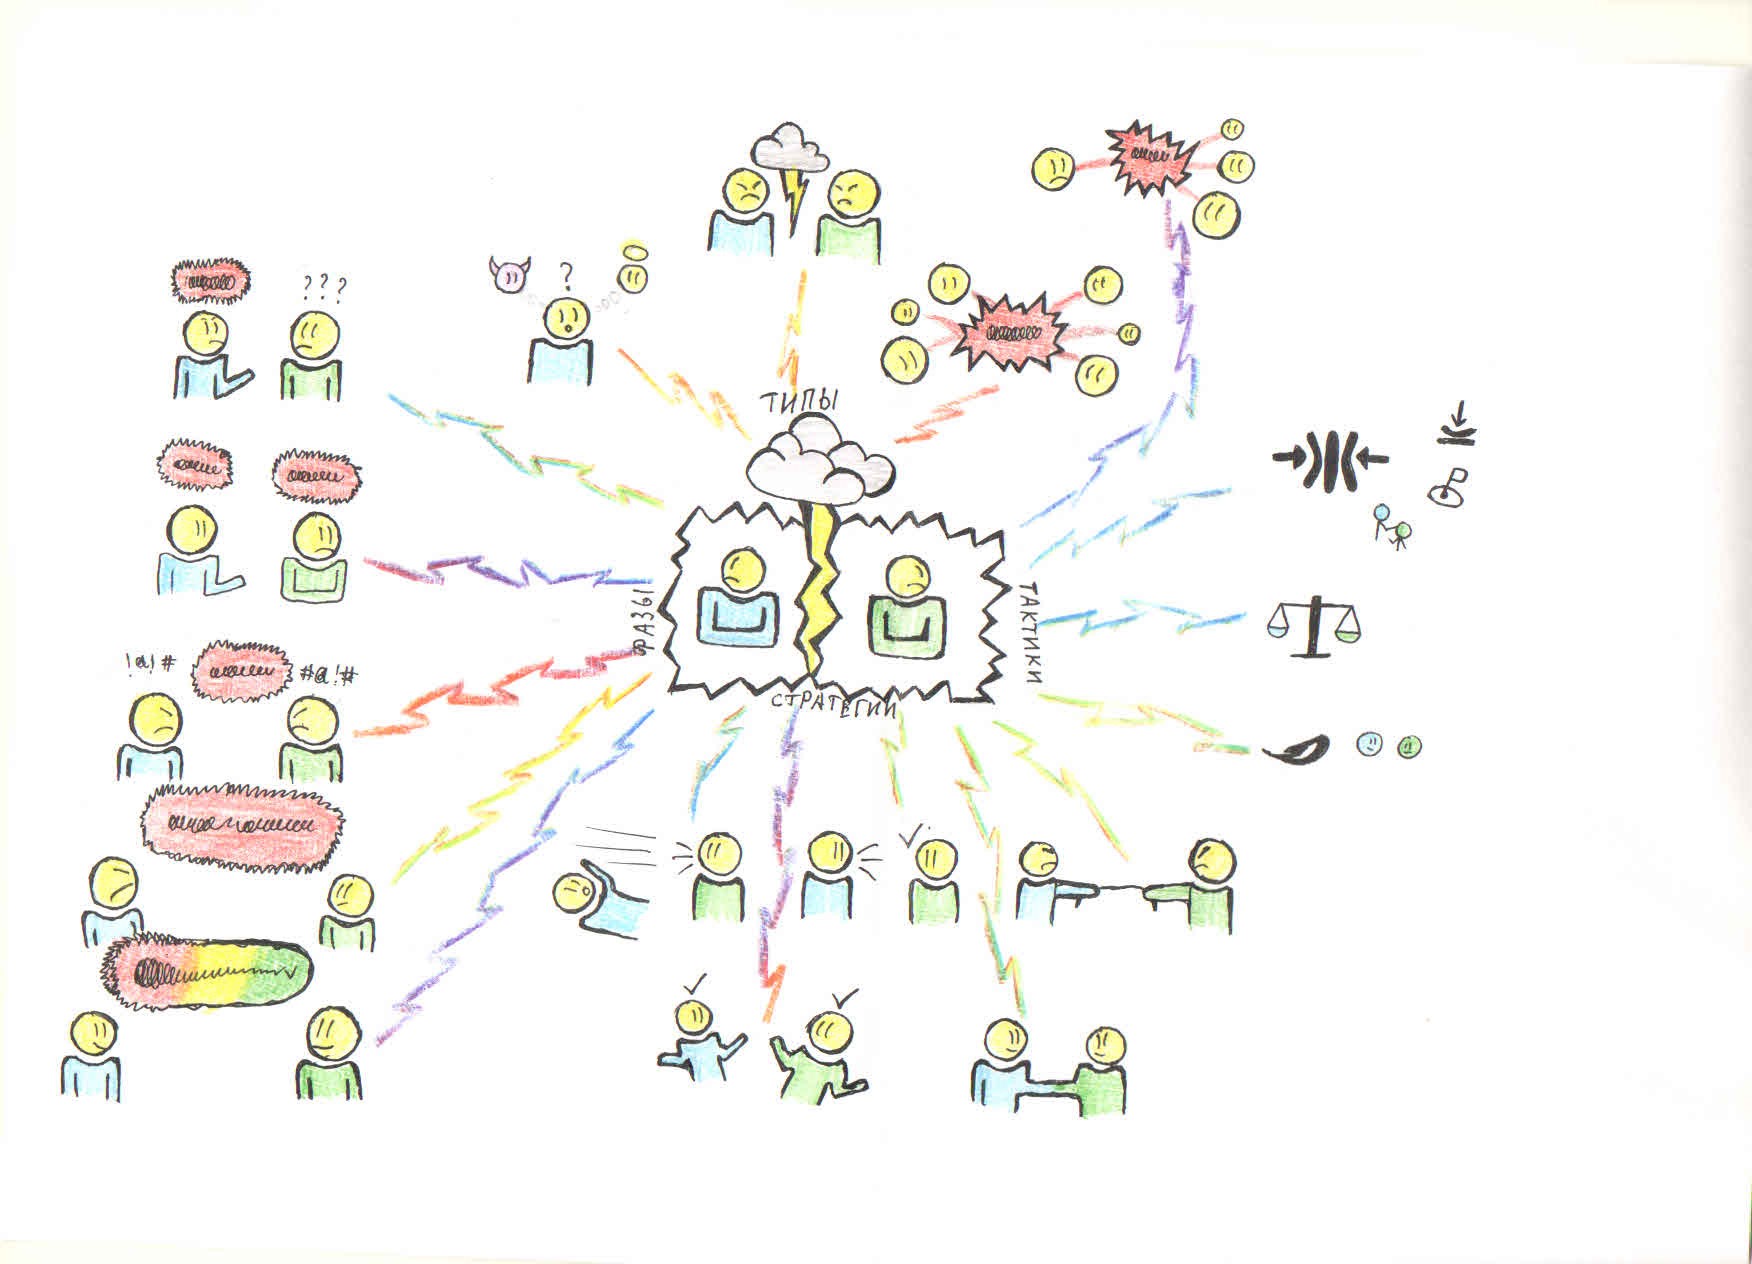 ? ? ?
?
ТИПЫ
ФАЗЫ
ТАКТИКИ
!@!#
#@!#
СТРАТЕГИИ